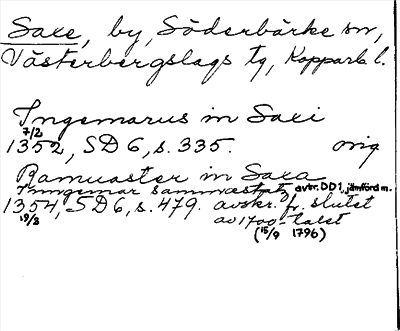 Saxe, by, Söderbärke sn,
Västerbergslags tg, Kopparb l.
Ingemarus in Saxi
7/2
1352, SD 6, s. 335. orig
Ramuaster in Saxa
Inngemar sammastatz avtr. DD1, jämförd m.
1354, SD 6, s. 479. avskr. fr. slutet
19/3 av 1700-talet
(15/9 1796)